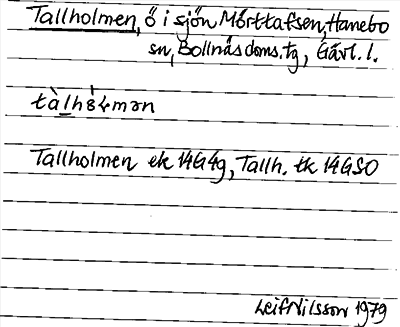 Tallholmen, ö i sjön Mörttafsen, Hanebo
sn, Bollnäs doms. tg, Gävl. l.
tàlhòɫmən
Tallholmen ek 14G4g, Tallh. tk 14GSO
Leif Nilsson 1979